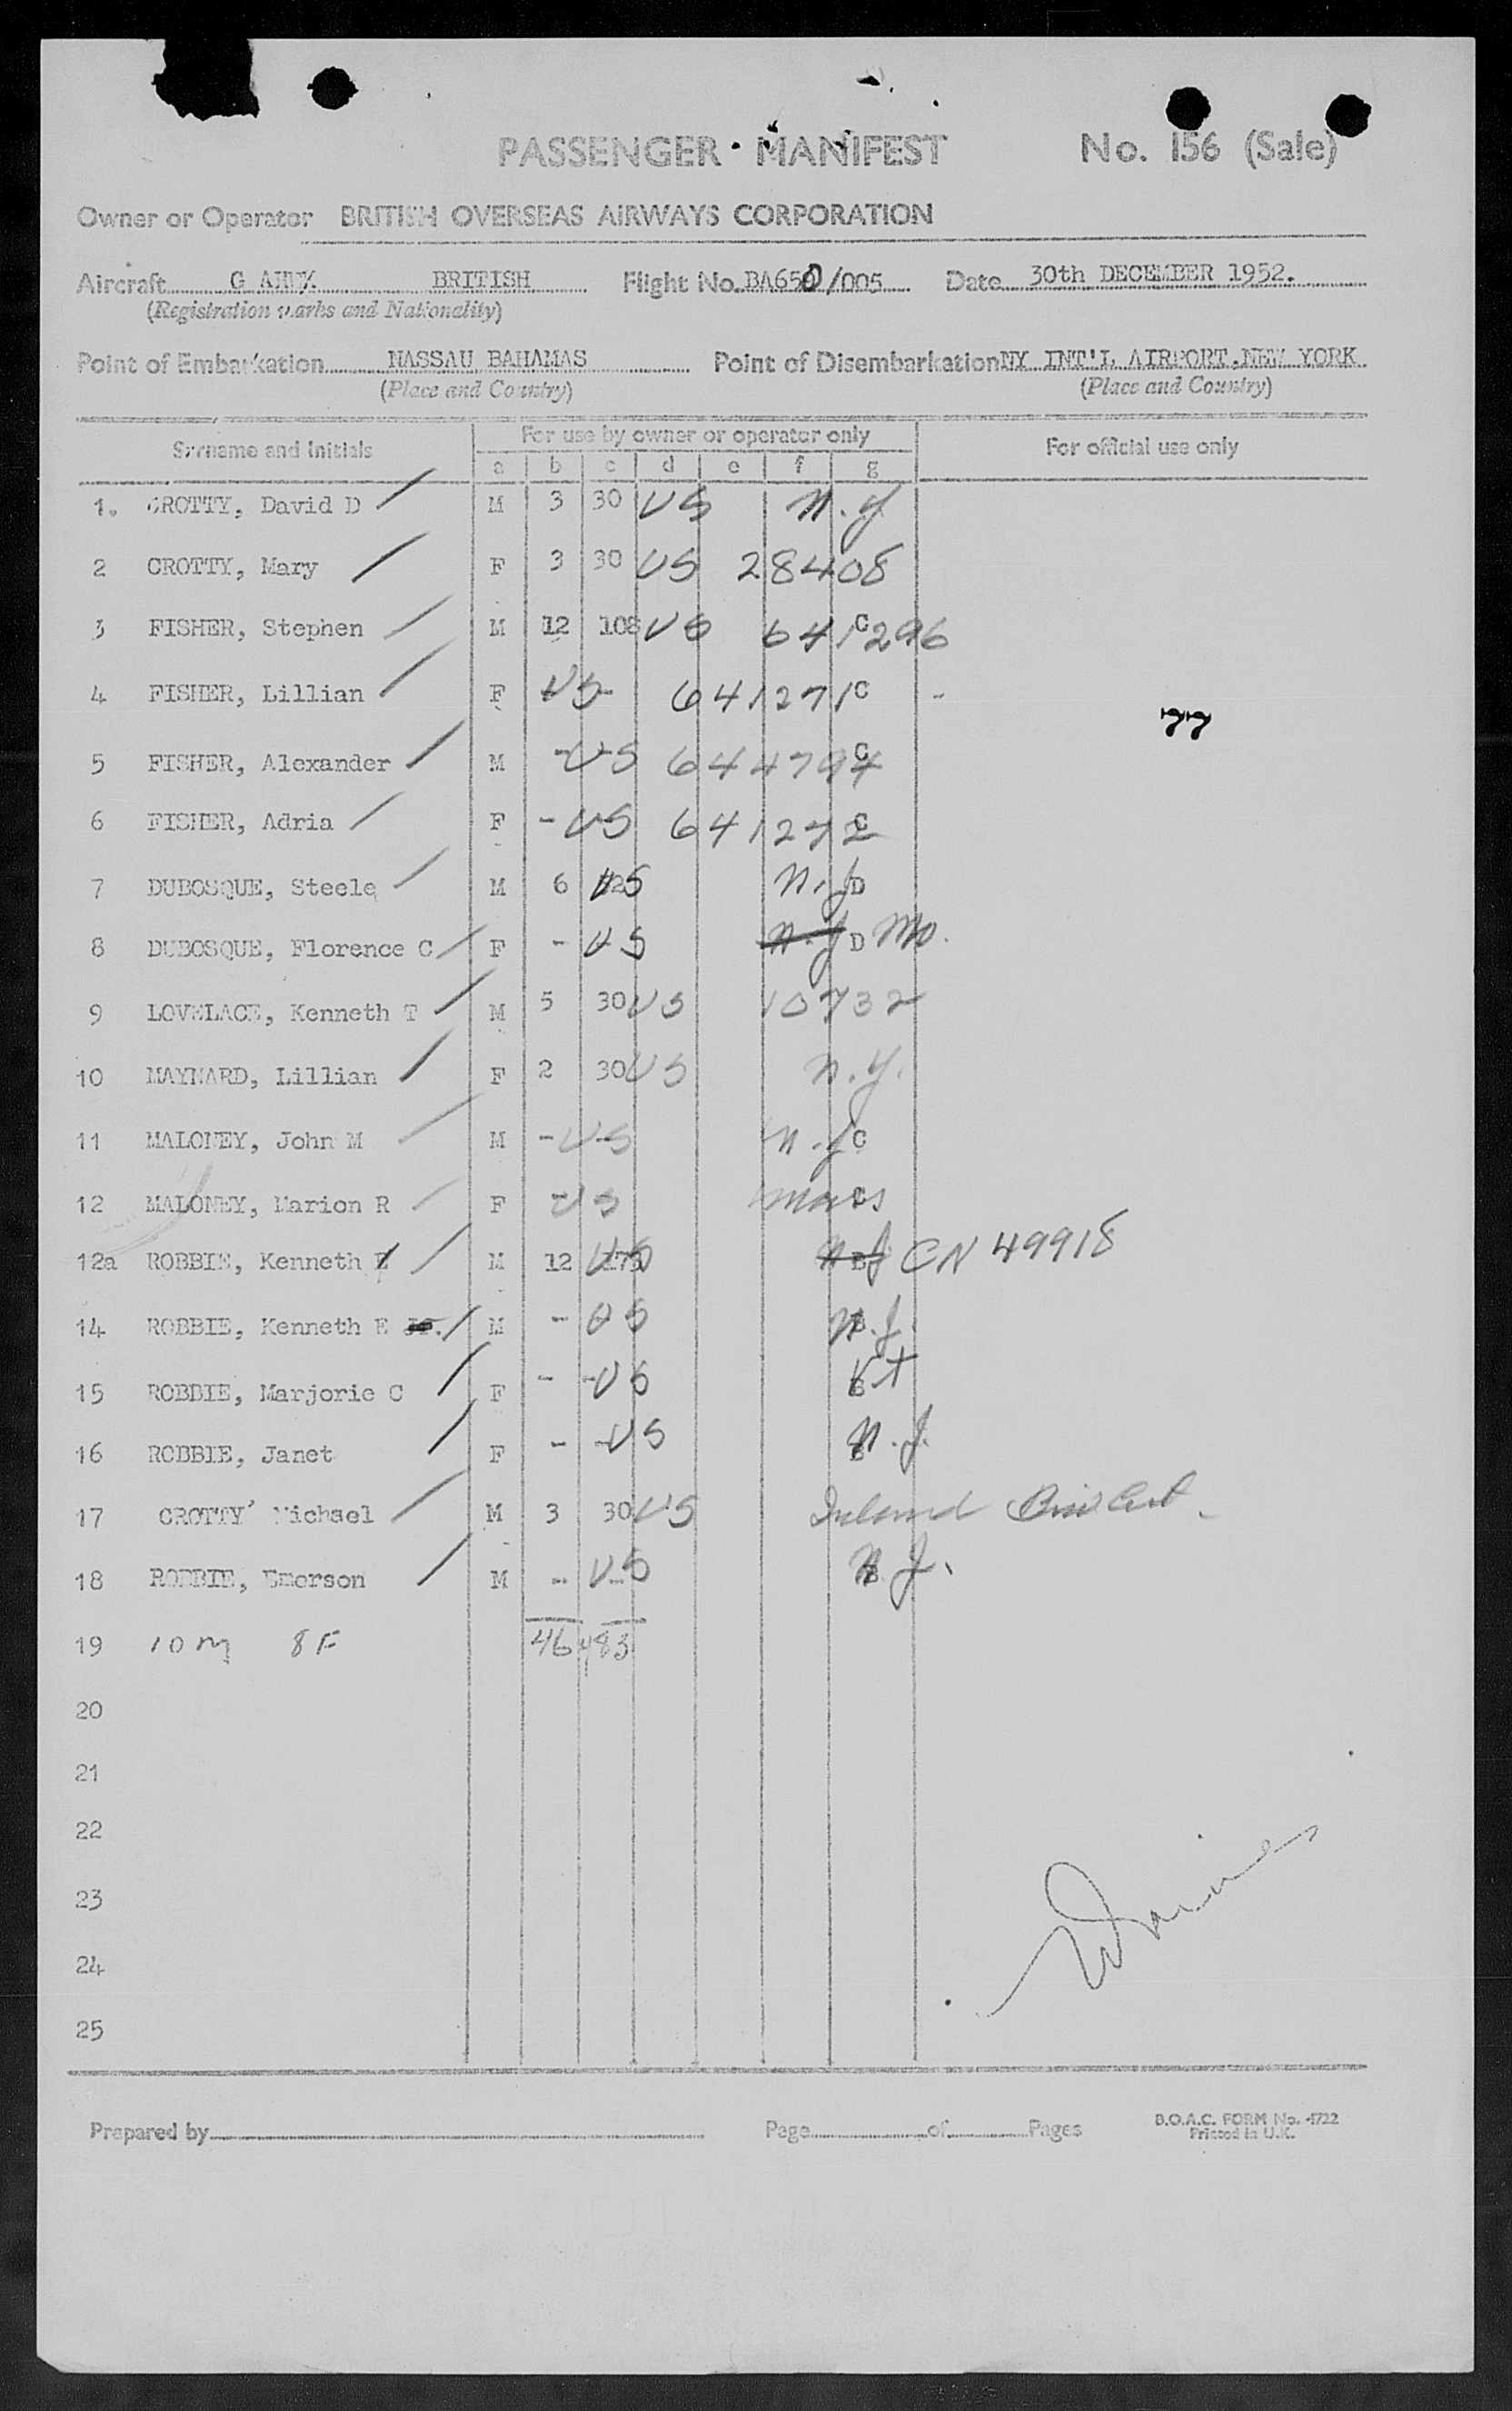 PASSENGER MANIFEST No. 156 (Sale)
Owner or Operator BRITISH OVERSEAS AIRWAYS CORPORATION
Aircraft G BRITISH Flight No. BA650/005 Date 30th DECEMBER 1952.
(Registration marks and Nationality)
Point of Embarkation NASSAU BAHAMAS Point of Disembarkation NY INT'L AIRPORT, NEW YORK
(Place and Country) (Place and Country)
Surname and Initials For use by owner or operator only For official use only
a b c d e f g
1. CROTTY, David D M 3 30 US N.Y
2 CROTTY, Mary F 3 30 US 28408
3 FISHER, Stephen M 12 108 US 641296 C
4 FISHER, Lillian F - US - 641271 C -
77
5 FISHER, Alexander M - US 644794 C
6 FISHER, Adria F - US 641272 C
7 DUBOSQUE, Steele M 6 US N.J D
8 DUBOSQUE, Florence C F - US N.J D Mo.
9 LOVELACE, Kenneth T M 5 30 US 10732
10 MAYNARD, Lillian F 2 30 US N.Y.
11 MALONEY, John M M - US N.J C
12 MALONEY, Marion R F - US Mass C
12a ROBBIE, Kenneth E M 12 175 US N.J B CN 49918
14 ROBBIE, Kenneth E Jr. M - US N.J. B
15 ROBBIE, Marjorie C F - - US Vt B
16 ROBBIE, Janet F - - US N.J. B
17 CROTTY' Michael M 3 30 US Cert -
18 ROBBIE, Emerson M - US N.J. B
19 10 M 8 F 46 483
20
21
22
23
24
25
Prepared by Page of Pages B.O.A.C. FORM No. 1722
Printed in U.K.